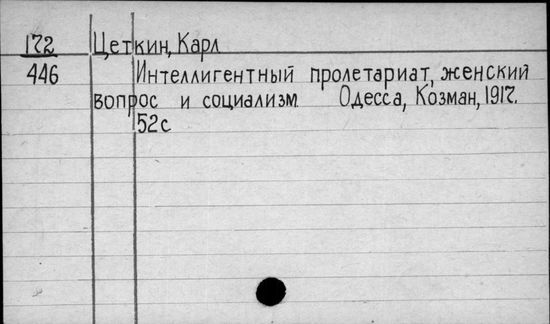 172 Цеткин, Карл
446 Интеллигентный пролетариат, женский
вопрос и социализм. Одесса, Козман, 1917.
52с